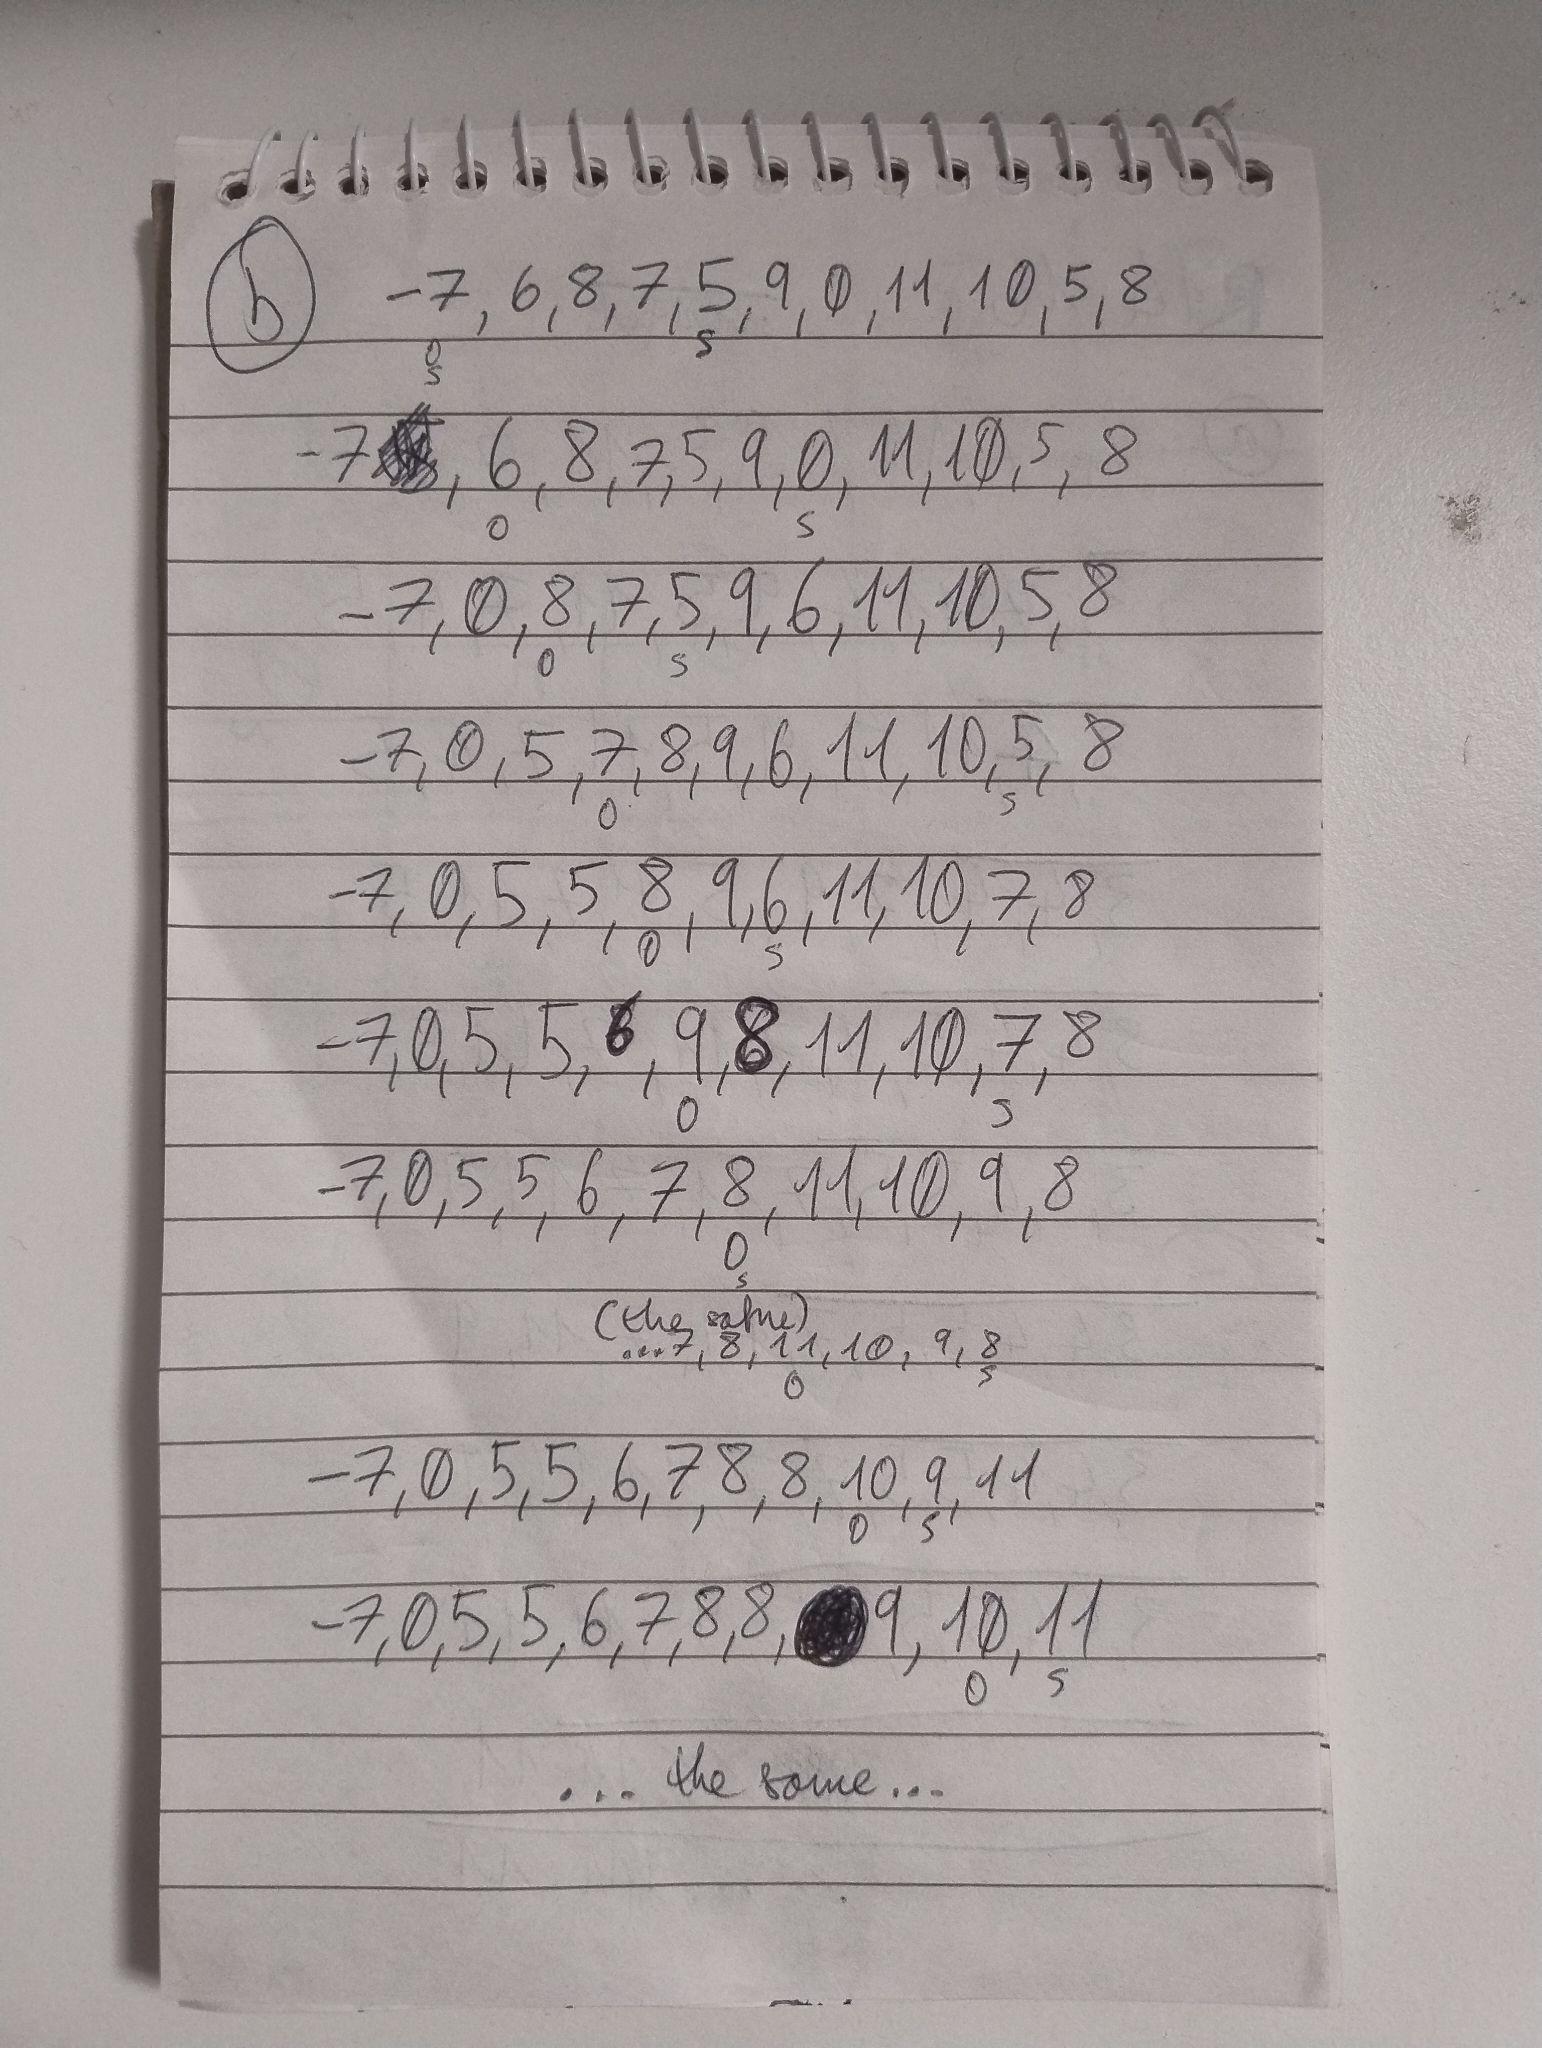 b -7, 6, 8, 7, 5, 9, 0, 11, 10, 5, 8
0 s
s
-7, 6, 8, 7, 5, 9, 0, 11, 10, 5, 8
0 s
-7, 0, 8, 7, 5, 9, 6, 11, 10, 5, 8
0 s
-7, 0, 5, 7, 8, 9, 6, 11, 10, 5, 8
0 s
-7, 0, 5, 5, 8, 9, 6, 11, 10, 7, 8
0 s
-7, 0, 5, 5, 6, 9, 8, 11, 10, 7, 8
0 s
-7, 0, 5, 5, 6, 7, 8, 11, 10, 9, 8
0
s
(the same)
...7, 8, 11, 10, 9, 8
0 s
-7, 0, 5, 5, 6, 7, 8, 8, 10, 9, 11
0 s
-7, 0, 5, 5, 6, 7, 8, 8, 9, 10, 11
0 s
... the same ...